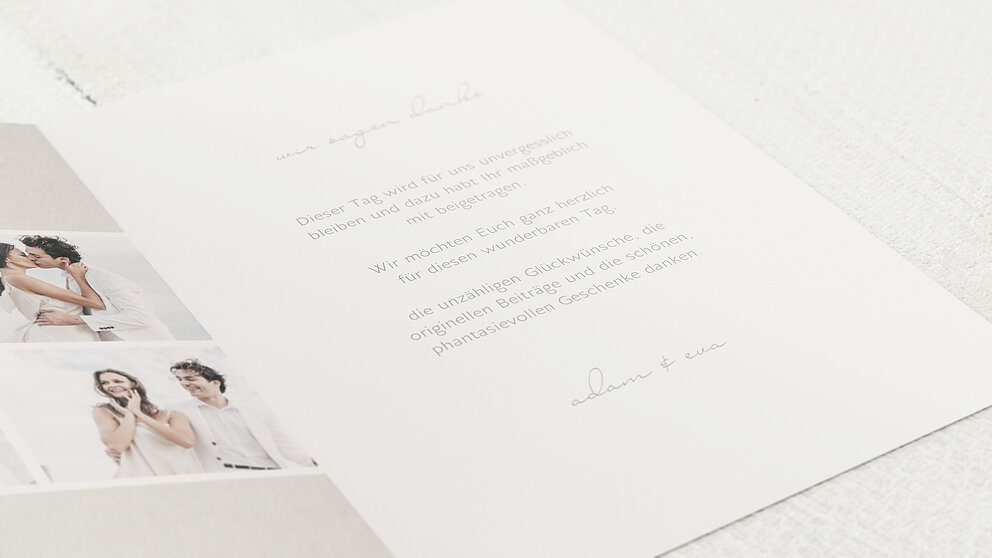 wir sagen danke
Dieser Tag wird für uns unvergesslich
bleiben und dazu habt Ihr maßgeblich
mit beigetragen.
Wir möchten Euch ganz herzlich
für diesen wunderbaren Tag,
die unzähligen Glückwünsche, die
originellen Beiträge und die schönen,
phantasievollen Geschenke danken.
adam & eva